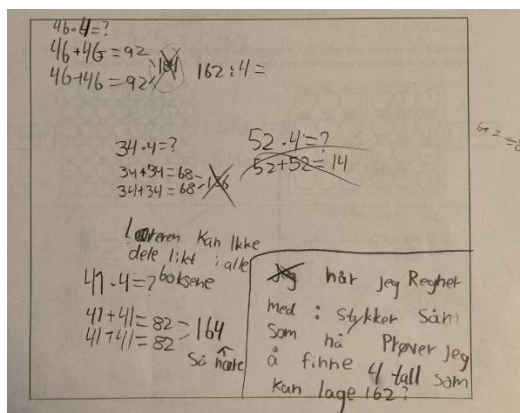 46·4=?
46+46=92
46+46=92
184
162:4=
34·4=?
34+34=68
34+34=68
136
52·4=?
52+52=14
Læreren kan ikke
dele likt i alle
boksene
41·4=?
41+41=82
41+41=82
164
så nære
Jeg når jeg Regner
med : stykker sån
som nå Prøver jeg
å finne 4 tall som
kan lage 162?